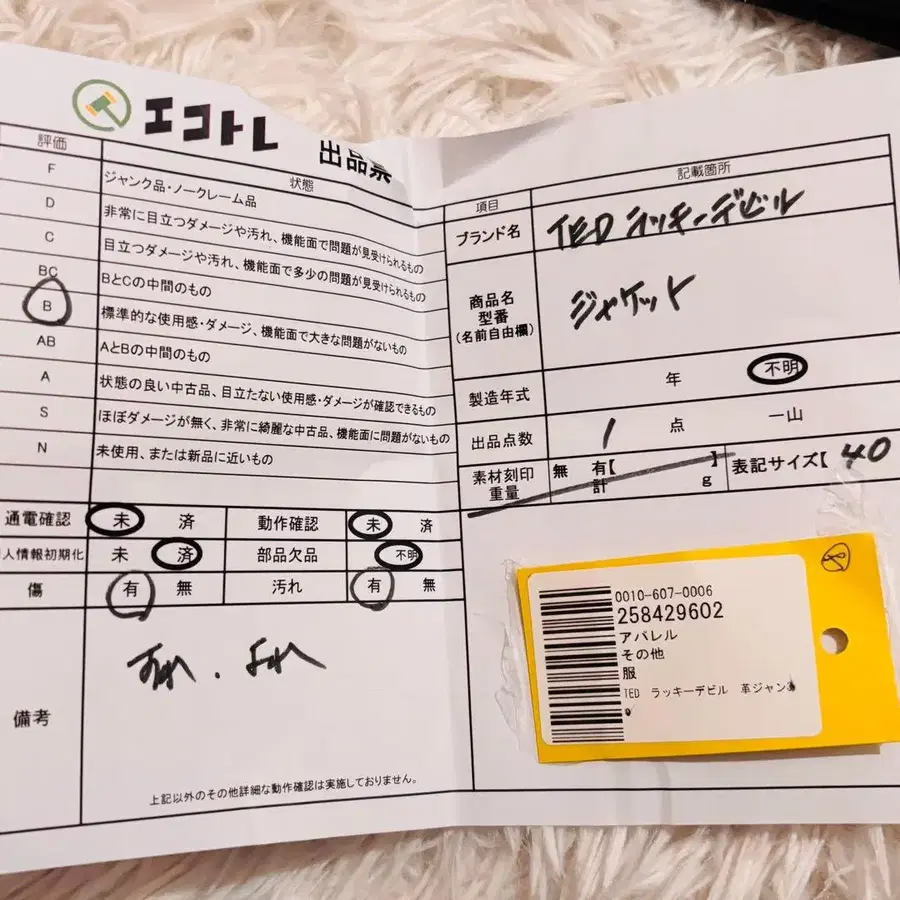 エコトレ
出品票
評価
状態
F
ジャンク品・ノークレーム品
D
非常に目立つダメージや汚れ、機能面で問題が見受けられるもの
C
目立つダメージや汚れ、機能面で多少の問題が見受けられるもの
BC
BとCの中間のもの
B
標準的な使用感・ダメージ、機能面で大きな問題がないもの
AB
AとBの中間のもの
A
状態の良い中古品、目立たない使用感・ダメージが確認できるもの
S
ほぼダメージが無く、非常に綺麗な中古品、機能面に問題がないもの
N
未使用、または新品に近いもの
通電確認 未 済 動作確認 未 済
人情報初期化 未 済 部品欠品 不明
傷 有 無 汚れ 有 無
備考
すれ.よれ
上記以外のその他詳細な動作確認は実施しておりません。
項目
記載箇所
ブランド名
TED ラッキーデビル
商品名
型番
(名前自由欄)
ジャケット
製造年式 年 不明
出品点数 1 点 一山
素材刻印
重量
無 有【 】
計 g
表記サイズ【 40
0010-607-0006
258429602
アパレル
その他
服
TED ラッキーデビル 革ジャン